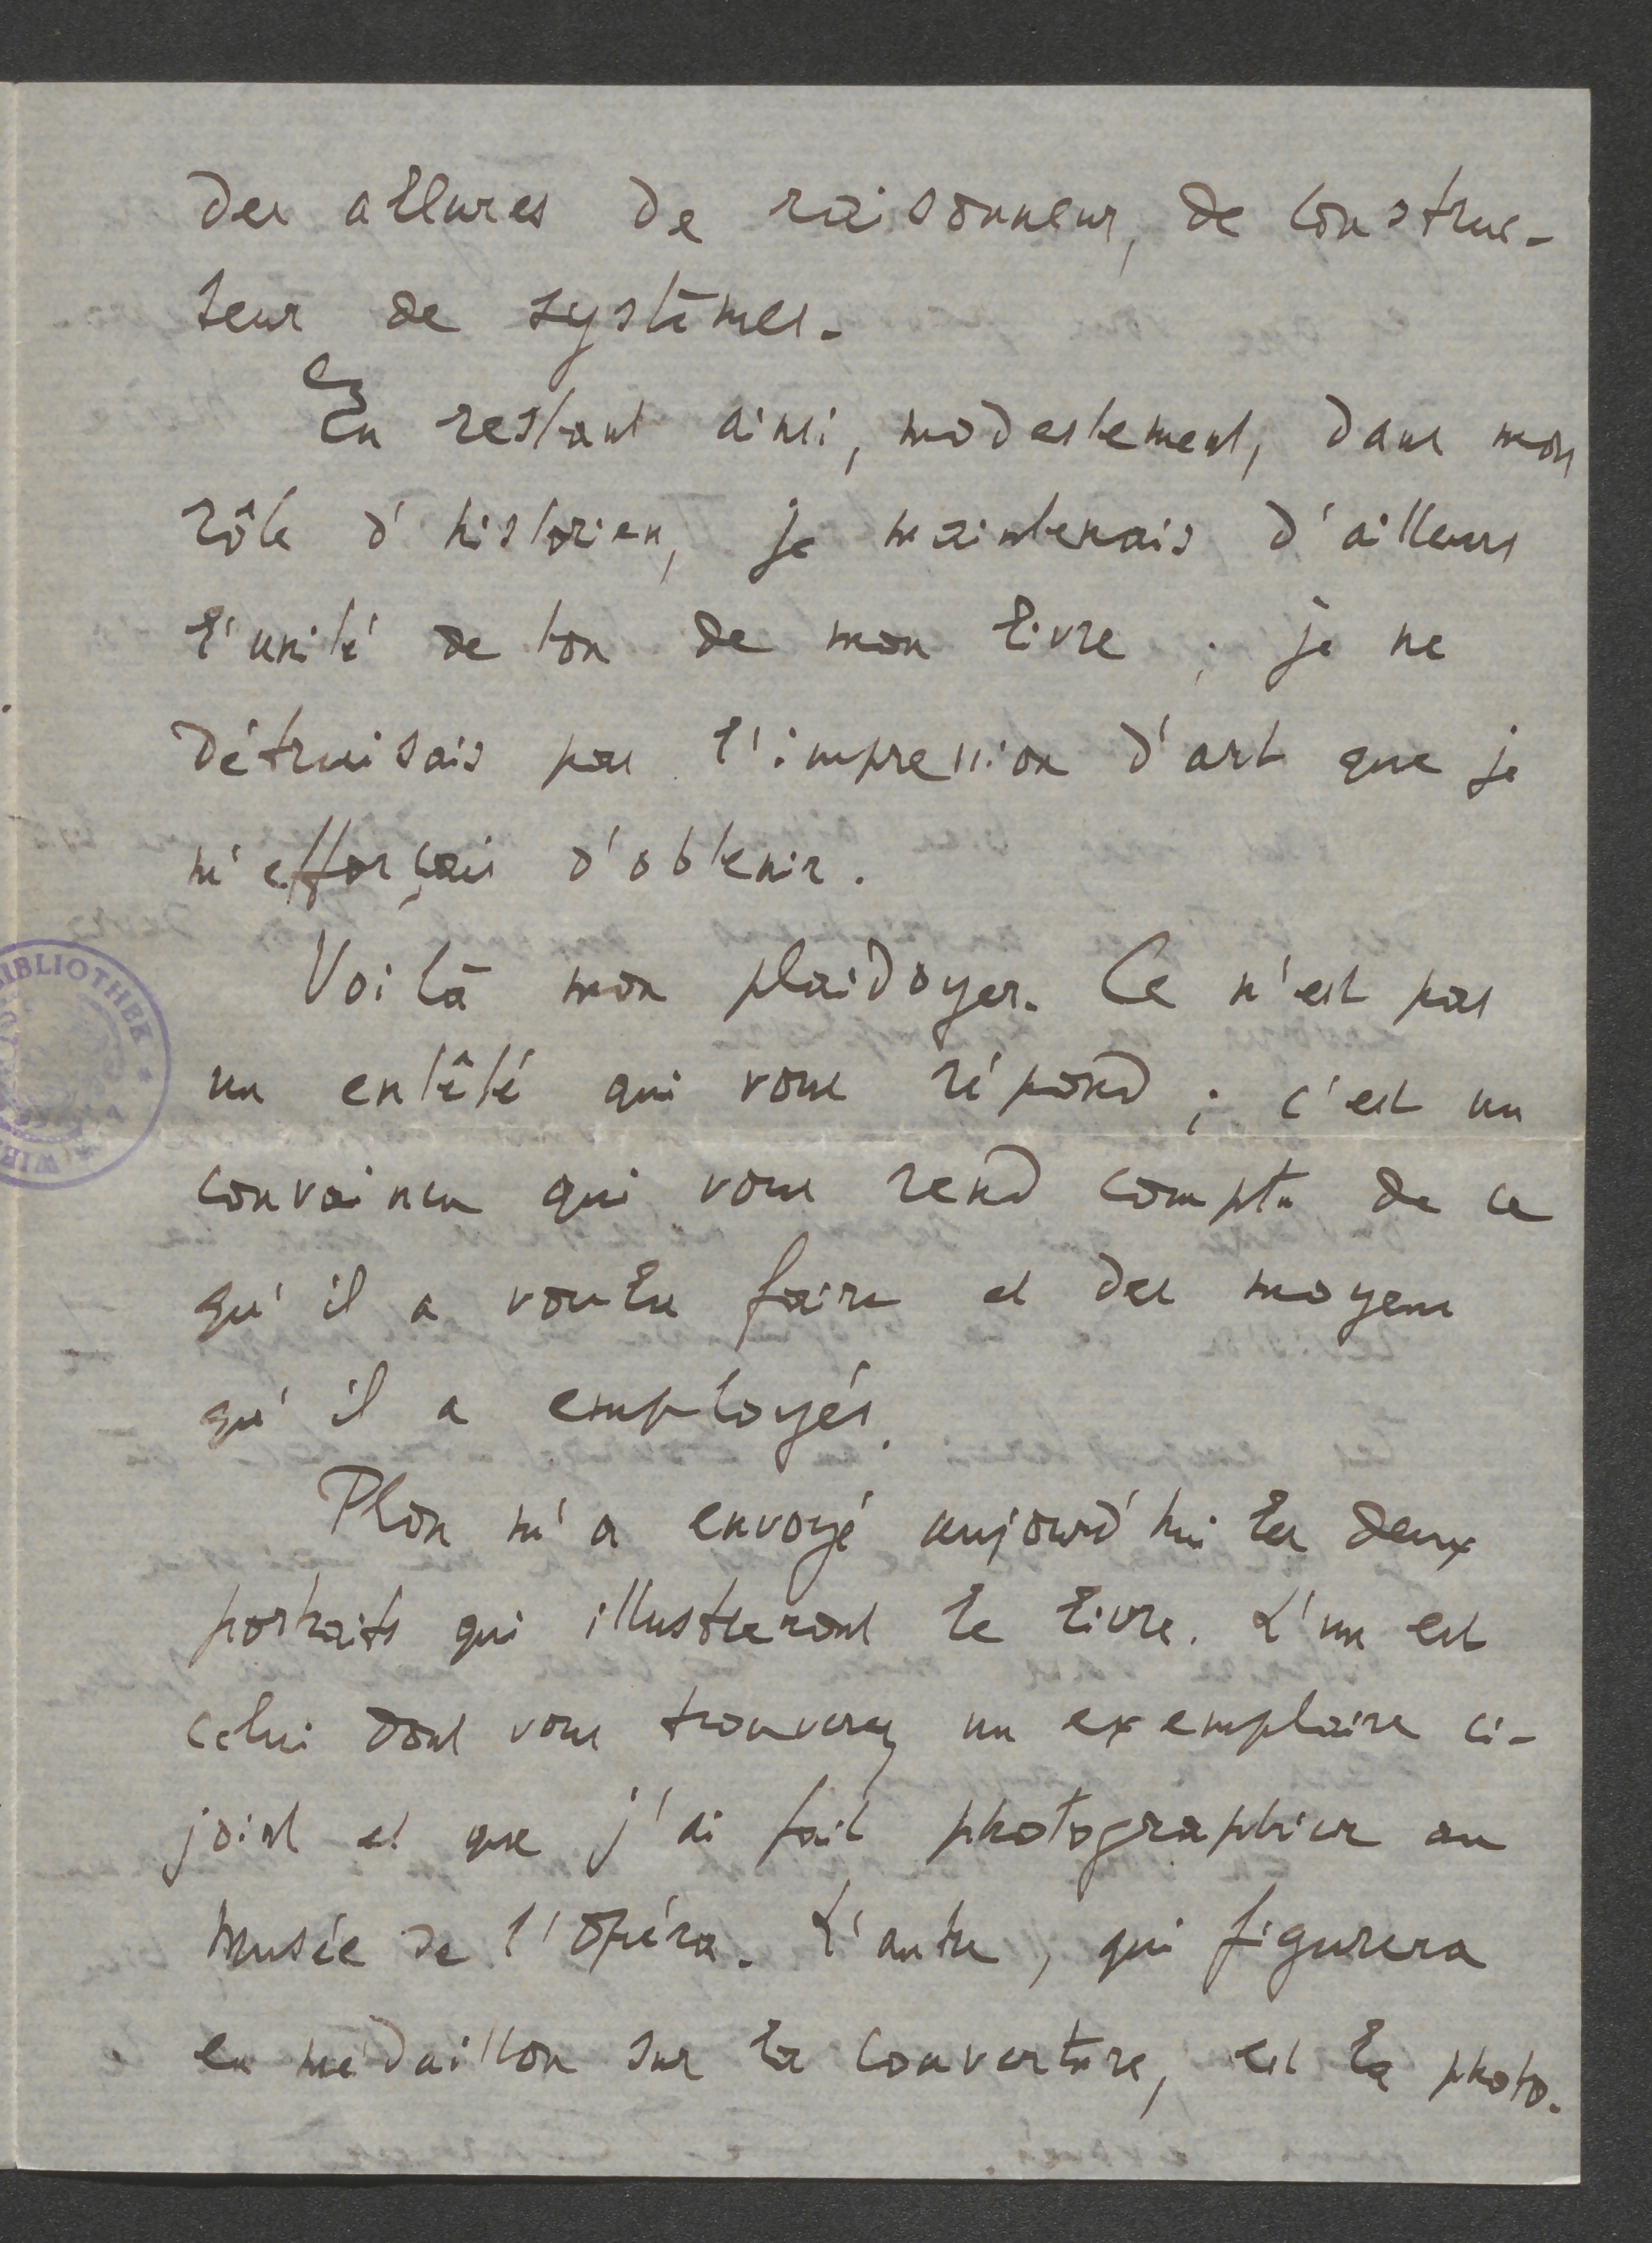 des allures de raisonneur, de construc-
teur de systèmes.
En restant ainsi, modestement, dans mon
rôle d'historien, je maintenais d'ailleurs
l'unité de ton de mon livre ; je ne
détruisais pas l'impression d'art que je
m'efforçais d'obtenir.
Voilà mon plaidoyer. Ce n'est pas
un entêté qui vous répond ; c'est un
convaincu qui vous rend compte de ce
qu'il a voulu faire et des moyens
qu'il a employés.
Plon m'a envoyé aujourd'hui les deux
portraits qui illustreront le livre. L'un est
celui dont vous trouverez un exemplaire ci-
joint et que j'ai fait photographier au
musée de l'Opéra. L'autre, qui figurera
en médaillon sur la couverture, est la photo-
IBLIOTHEK *